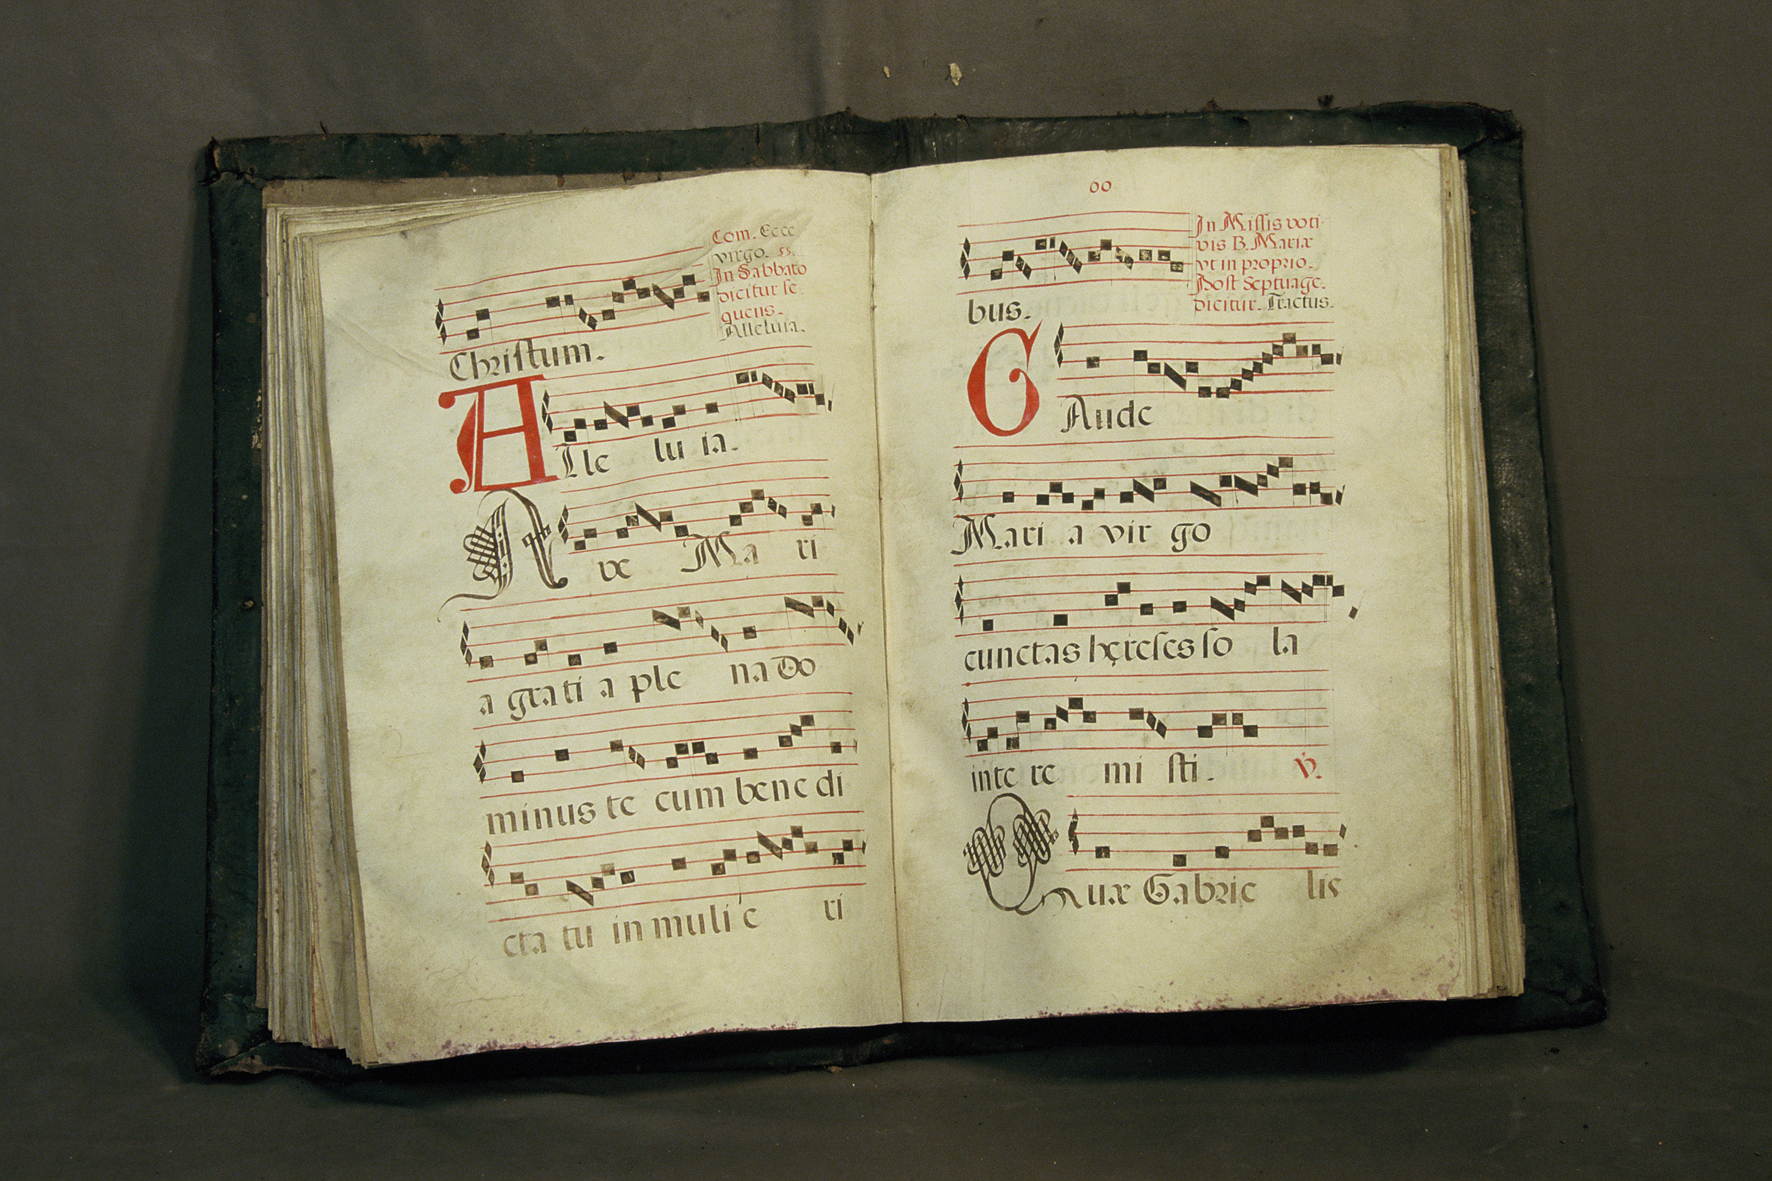 Com. Ecce
virgo. 55.
In Sabbato
dicitur se
quens.
Alleluia.
Chriſtum.
A lle lu ia.
A ve Ma ri
a grati a ple na Do
minus te cum bene di
cta tu in muli e ri
60
In Miſſis voti
vis B. Mariæ
vt in proprio.
Post Septuage.
dicitur. Tractus.
bus.
GAude
Mari a vir go
cunctas hęreſes ſo la
inte re mi ſti. V.
Quæ Gabrie lis